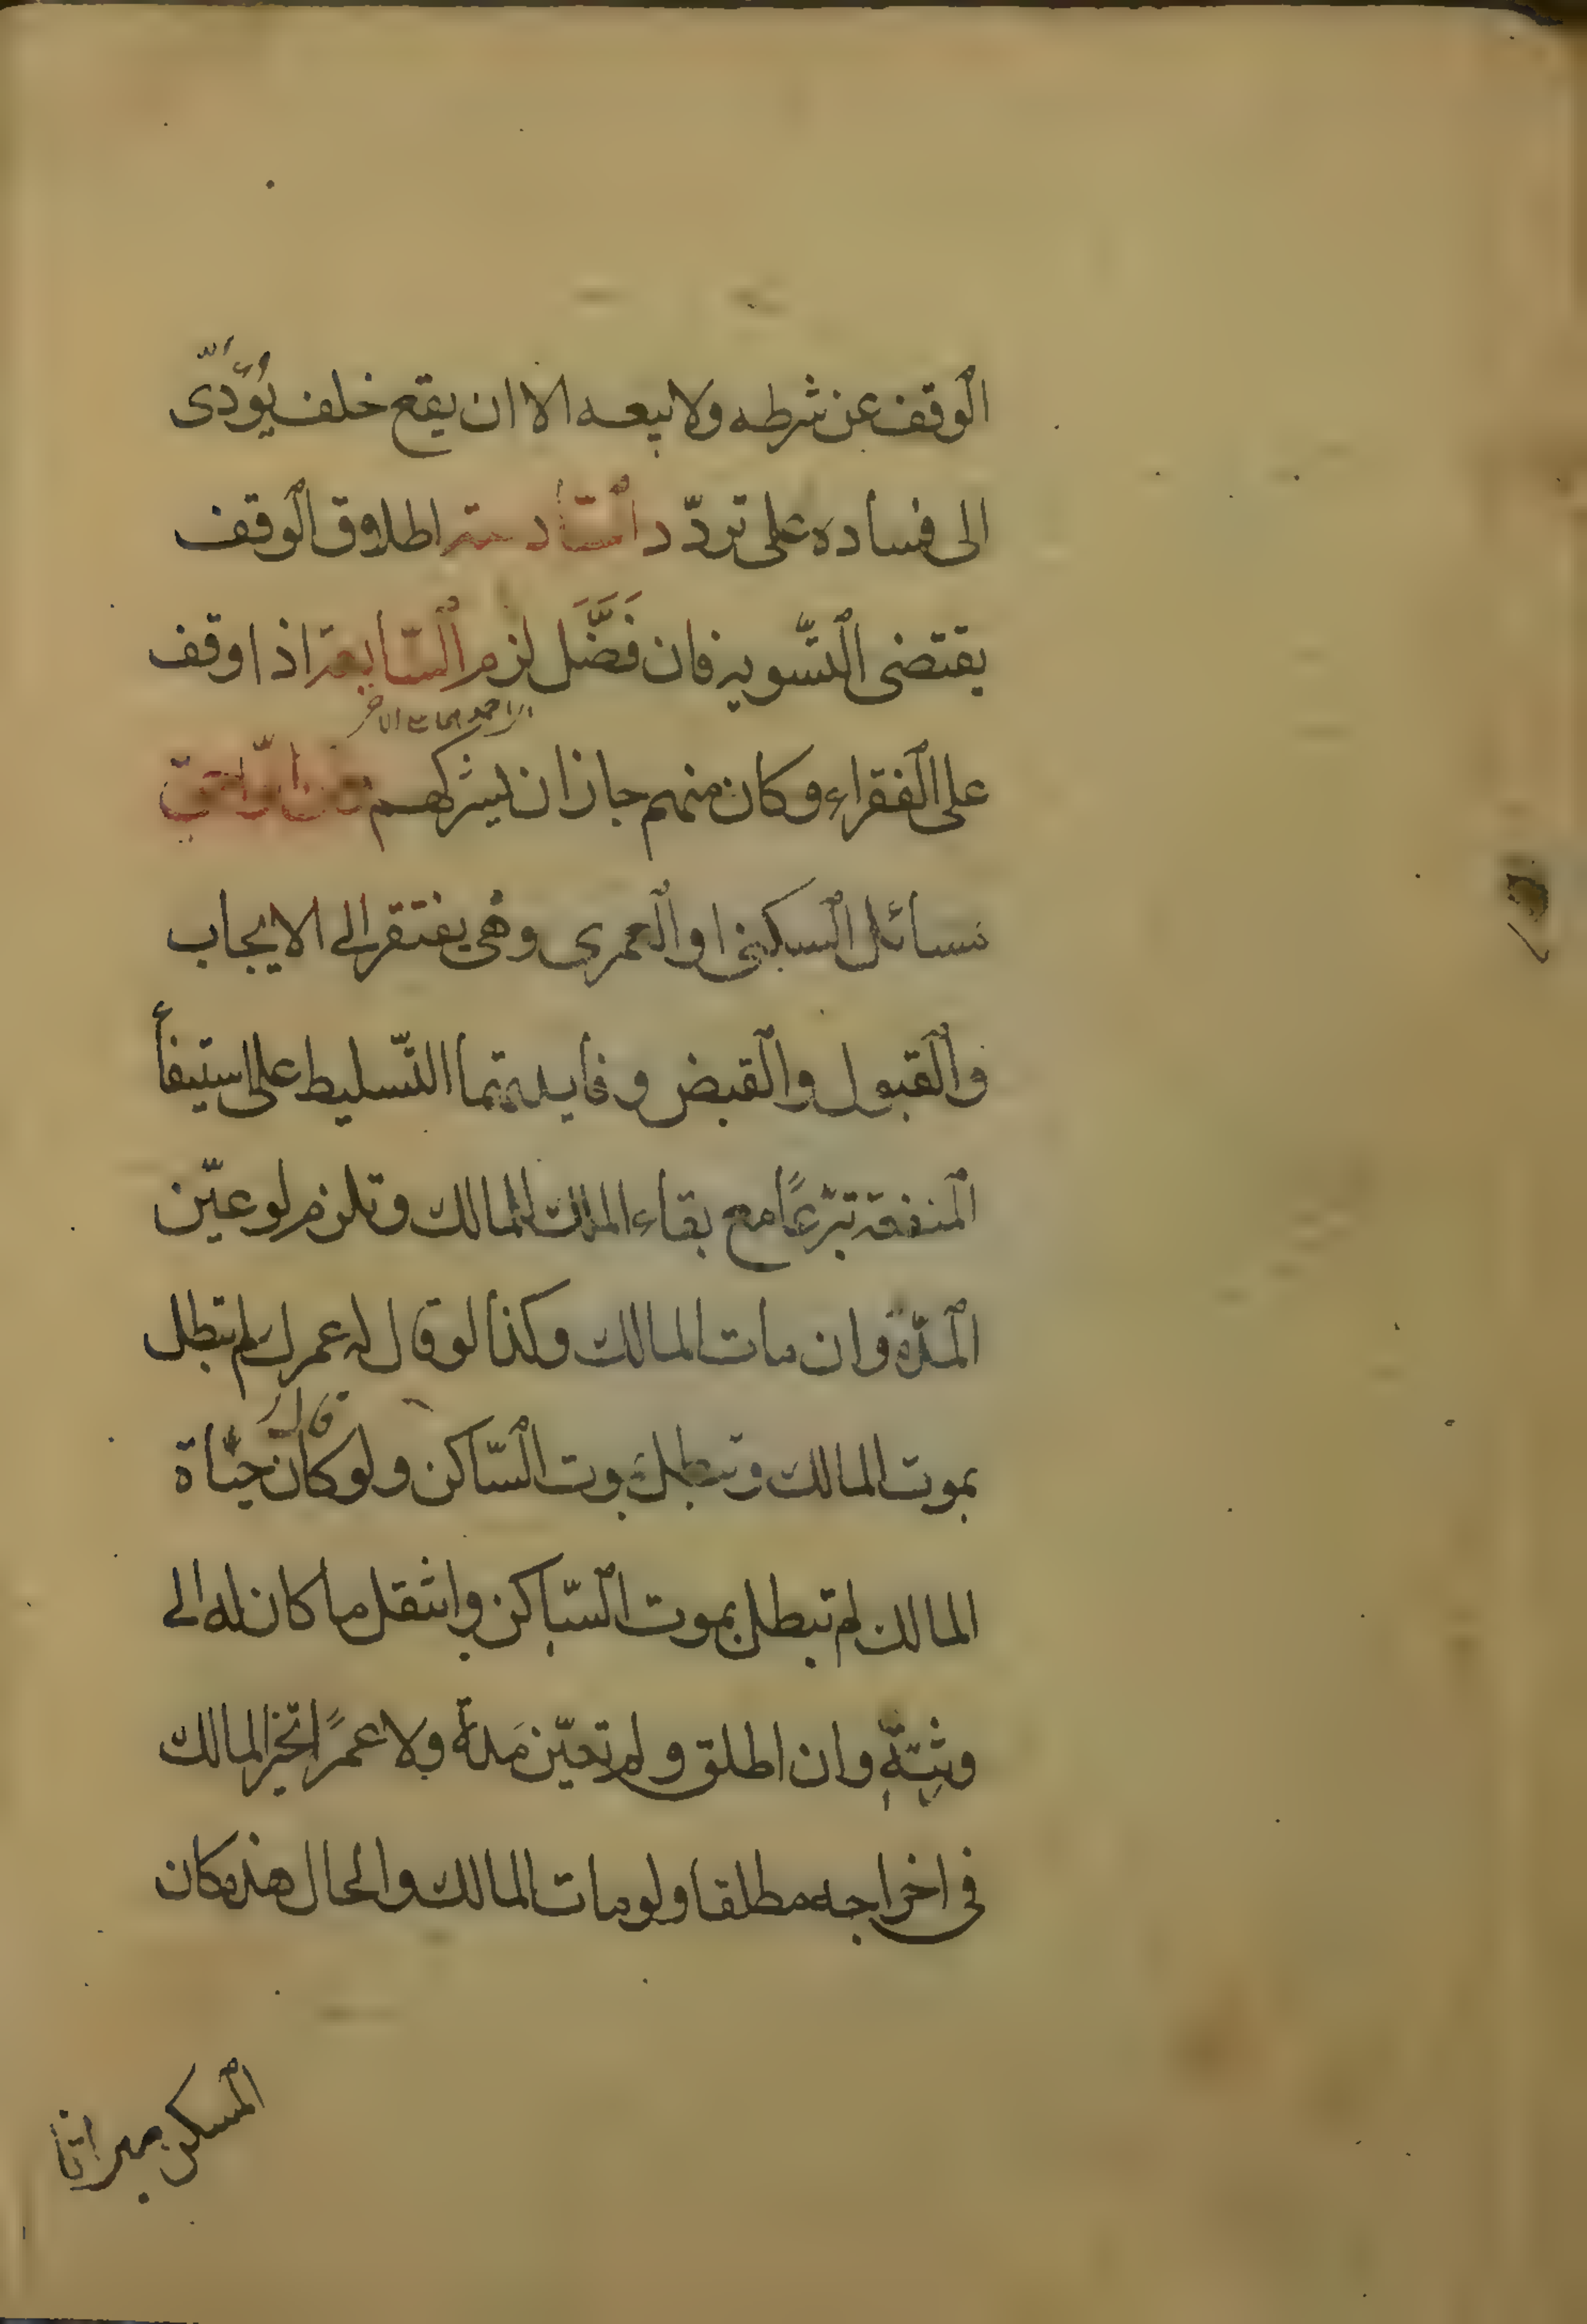 الوقف عن شرطه ولا بيعه الا ان يقع خلف يؤدّى
الى فساده على تردّد السّادسة اطلاق الوقف
يقتضى التّسويه فان فَضَّلَ لزم السّابعة اذا وقف
على الفقراء وكان منهم جاز ان يشركهم
مسائل السكنى او العمرى وهى يفتقر الى الايجاب
والقبول والقبض وفايدتهما التّسليط على استيفأ
المنفعة تبرّعًا مع بقاء الملك للمالك وتلزم لو عيّن
المدّة وان مات المالك وكذا لو قال له عمرك لم تبطل
بموت المالك وتبطل بموت السّاكن ولو كان حيٰاة
قال
المالك لم تبطل بموت السّاكن وانتقل ما كان له الى
ورثته وان اطلق ولم تعيّن مدة ولا عمرًا تخير المالك
فى اخراجه مطلقا ولو مات المالك والحال هذه كان
المسكن ميراثا